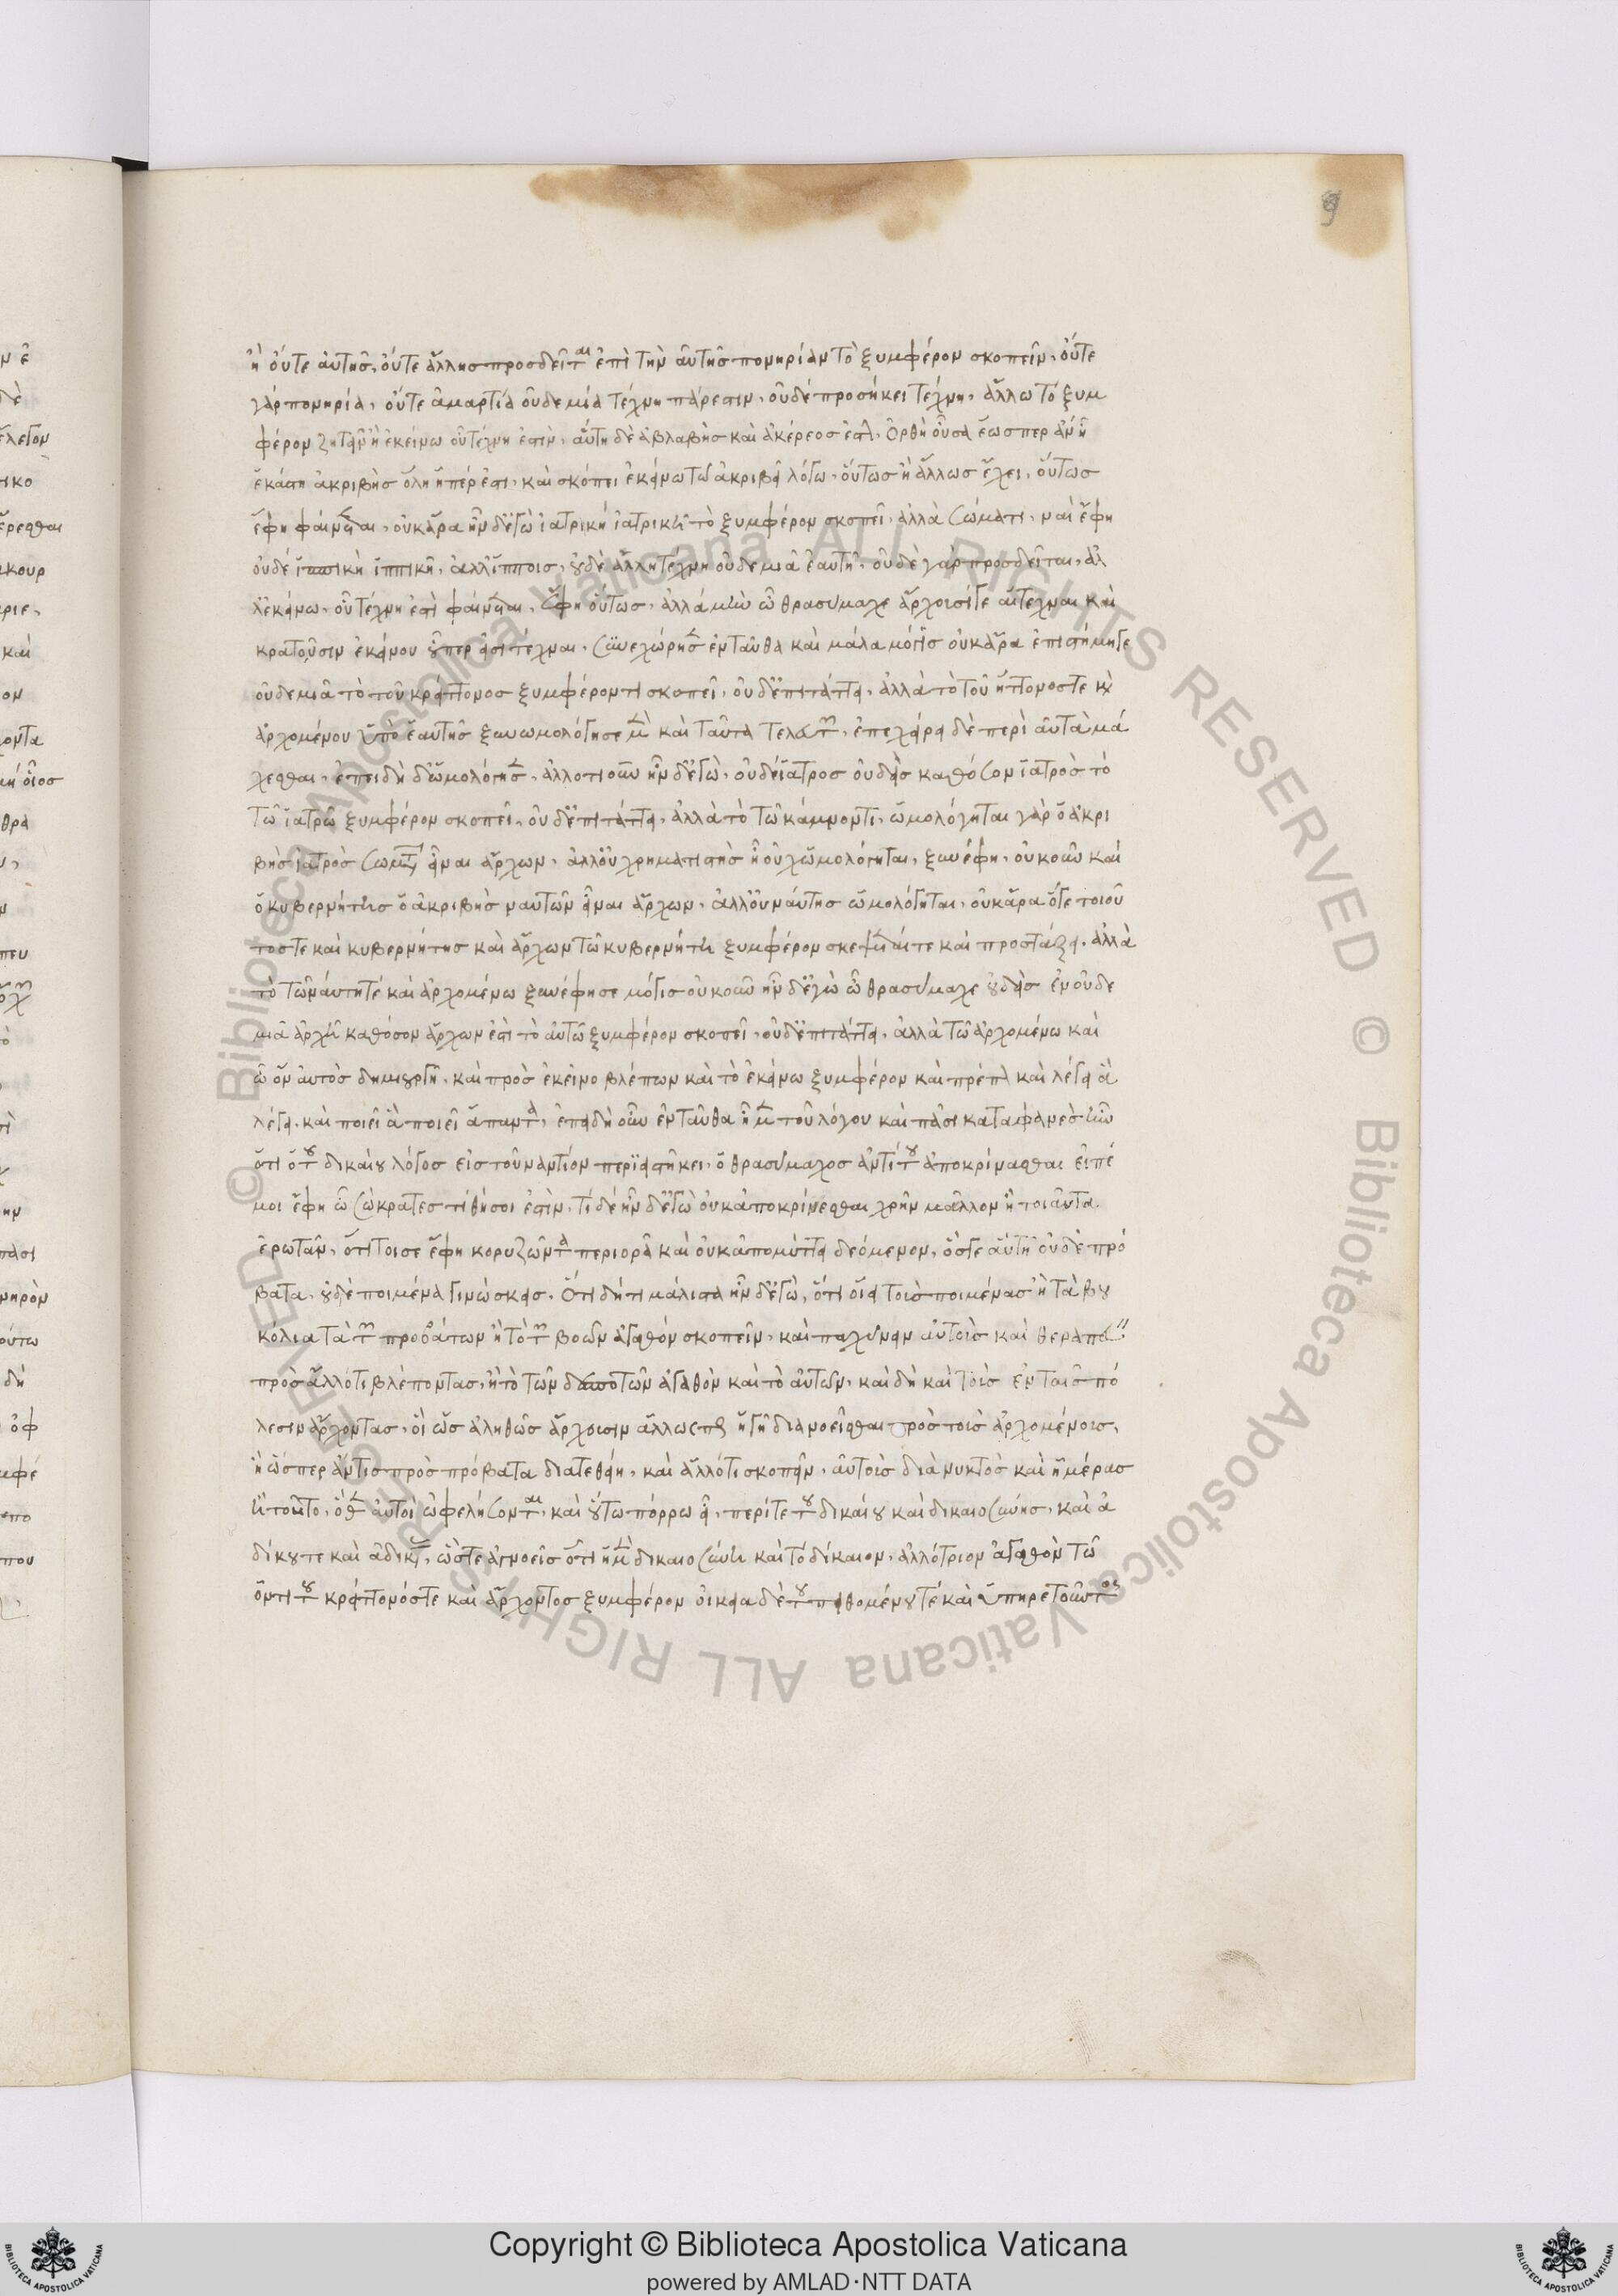 9
ἢ οὔτε αὐτῆς, οὔτε ἄλλης προσδεῖται ἐπὶ τὴν αὐτῆς πονηρίαν τὸ ξυμφέρον σκοπεῖν, οὔτε
γάρ πονηρία, οὔτε ἁμαρτία οὐδεμία τέχνη πάρεστιν, οὐδέ προσήκει τέχνη, ἄλλω τό ξυμ
φέρον ζητεῖν ἢ ἐκείνω οὗ τέχνη ἐστὶν, αὐτὴ δὲ ἀβλαβὴς καὶ ἀκέρεος ἐστὶ, ὀρθὴ οὖσα ἕωσπερ ἂν ἦ
ἑκάστη ἀκριβὴς ὅλη ἥπέρ ἐστι, καὶ σκόπει ἐκείνω τῶ ἀκριβεῖ λόγω, οὕτως ἢ ἄλλως ἔχει, οὕτως
ἔφη φαίνεται, οὐκ ἄρα ἦν δ' ἐγὼ ἰατρική ἰατρικῆ τὸ ξυμφέρον σκοπεῖ, ἀλλὰ σώματι, ναὶ ἔφη
οὐδέ ἱππικὴ ἱππικῆ, ἀλλ' ἵπποις, οὐδὲ ἄλλη τέχνη οὐδεμιᾶ ἑαυτῆ, οὐδὲ γάρ προσδεῖται, ἀλ
λ' ἐκείνω, οὗ τέχνη ἐστὶ φαίνεται, ἔφη οὕτως, ἀλλά μὴν ὦ θρασύμαχε ἄρχουσί γε αἱ τέχναι καὶ
κρατοῦσιν ἐκείνου οὗπερ εἰσι τέχναι, συνεχώρησεν ἐνταῦθα καὶ μάλα μόγις οὐκ ἄρα ἐπιστήμη γε
οὐδεμιᾶ τὸ τοῦ κρείττονος ξυμφέροντι σκοπεῖ, οὐδ' ἐπιτάττει, ἀλλὰ τὸ τοῦ ἥττονος τε καὶ
ἀρχομένου ὑπὸ ἑαυτῆς ξυνωμολόγησε μὲν καὶ ταῦτα τελευτῶν, ἐπεχείρει δὲ περὶ αὐτὰ μά
χεσθαι, ἐπειδὴ δ' ὡμολόγησεν, ἄλλο τι οὖν ἦν δ' ἐγὼ, οὐδέ ἰατρος οὐδεὶς καθόσον ἰατρὸς τὸ
τῶ ἰατρῶ ξυμφέρον σκοπεῖ, οὐδ' ἐπιτάττει, ἀλλὰ τὸ τῶ κάμνοντι, ὡμολόγηται γὰρ ὁ ἀκρι
βὴς ἰατρὸς σωμάτων εἶναι ἄρχων, ἀλλ' οὐ χρηματιστὴς ἢ οὐχ ὡμολόγηται, ξυνέφη, οὐκοῦν καὶ
ὁ κυβερνήτης ὁ ἀκριβὴς ναυτῶν εἶναι ἄρχων, ἀλλ' οὐ ναύτης ὡμολόγηται, οὐκ ἄρα ὅγε τοιοῦ
τος τε καὶ κυβερνήτης καὶ ἄρχων τῶ κυβερνήτη ξυμφέρον σκέψεταί τε καὶ προστάξει, ἀλλὰ
τὸ τῶ ναύτη τέ καὶ ἀρχομένω ξυνέφησε μόγις οὐκοῦν ἦν δ' ἐγὼ ὦ θρασύμαχε οὐδεὶς ἐν οὐδε
μιᾶ ἀρχῆ καθόσον ἄρχων ἐστὶ τὸ αὐτῶ ξυμφέρον σκοπεῖ, οὐδ' ἐπιτάττει, ἀλλὰ τῶ ἀρχομένω καὶ
ὧ ἂν αὐτὸς δημιουργῆ, καὶ πρὸς ἐκεῖνο βλέπων καὶ τὸ ἐκείνω ξυμφέρον καὶ πρέπον καὶ λέγει ἃ
λέγει, καὶ ποιεῖ ἃ ποιεῖ ἅπαντα, ἐπειδὴ οὖν ἐνταῦθα ἦμεν τοῦ λόγου καὶ πᾶσι καταφανὲς ἦν
ὅτι ὁ τοῦ δικαίου λόγος εἰς τοὐναντίον περϊειστήκει, ὁ θρασύμαχος ἀντί τοῦ ἀποκρίνασθαι εἰπέ
μοι ἔφη ὦ σώκρατες τιθή σοι ἐστὶν, τί δέ ἦν δ' ἐγὼ οὐκ ἀποκρίνεσθαι χρῆν μᾶλλον ἢ τοιαῦτα
ἐρωτᾶν, ὅτι τοι σε ἔφη κορυζῶντα περιορᾶ καὶ οὐκ ἀπομύττει δεόμενον, ὅς γε αὐτῆ οὐδὲ πρό
βατα, οὐδὲ ποιμένα γινώσκεις, ὅτι δή τι μάλιστα ἦν δ' ἐγὼ, ὅτι οἴει τοὶς ποιμένας ἢ τὰ βου
κόλια τὰ τῶν προβάτων ἢ τὸ τῶν βοῶν ἀγαθόν σκοπεῖν, καὶ παχύνειν αὐτοὶς καὶ θεραπεύειν
πρὸς ἄλλό τι βλέποντας, ἢ τὸ τῶν δεσποτῶν ἀγαθὸν καὶ τὸ αὑτῶν, καὶ δὴ καὶ τοὶς ἐν ταῖς πό
λεσιν ἄρχοντας, οἳ ὡς ἀληθῶς ἄρχουσιν ἄλλως πως ἡγῆ διανοεῖσθαι πρὸς τοὶς ἀρχομένοις,
ἢ ὥσπερ ἄν τις πρὸς πρόβατα διατεθείη, καὶ ἄλλό τι σκοπεῖν, αὐτοὶς διὰ νυκτὸς καὶ ἡμέρας
ἢ τοῦτο, ὅθεν αὐτοὶ ὠφελήσονται, καὶ οὕτω πόρρω εἶ, περίτε τοῦ δικαίου καὶ δικαιοσύνης, καὶ ἀ
δίκου τε καὶ ἀδικίας, ὥστε ἀγνοεῖς ὅτι ἡ μὲν δικαιοσύνη καὶ τό δίκαιον, ἀλλότριον ἀγαθὸν τῶ
ὄντι τοῦ κρείττονός τε καὶ ἄρχοντος ξυμφέρον οἰκεία δὲ τοῦ πειθομένου τέ καὶ ὑπηρετοῦντος
Copyright © Biblioteca Apostolica Vaticana
powered by AMLAD·NTT DATA